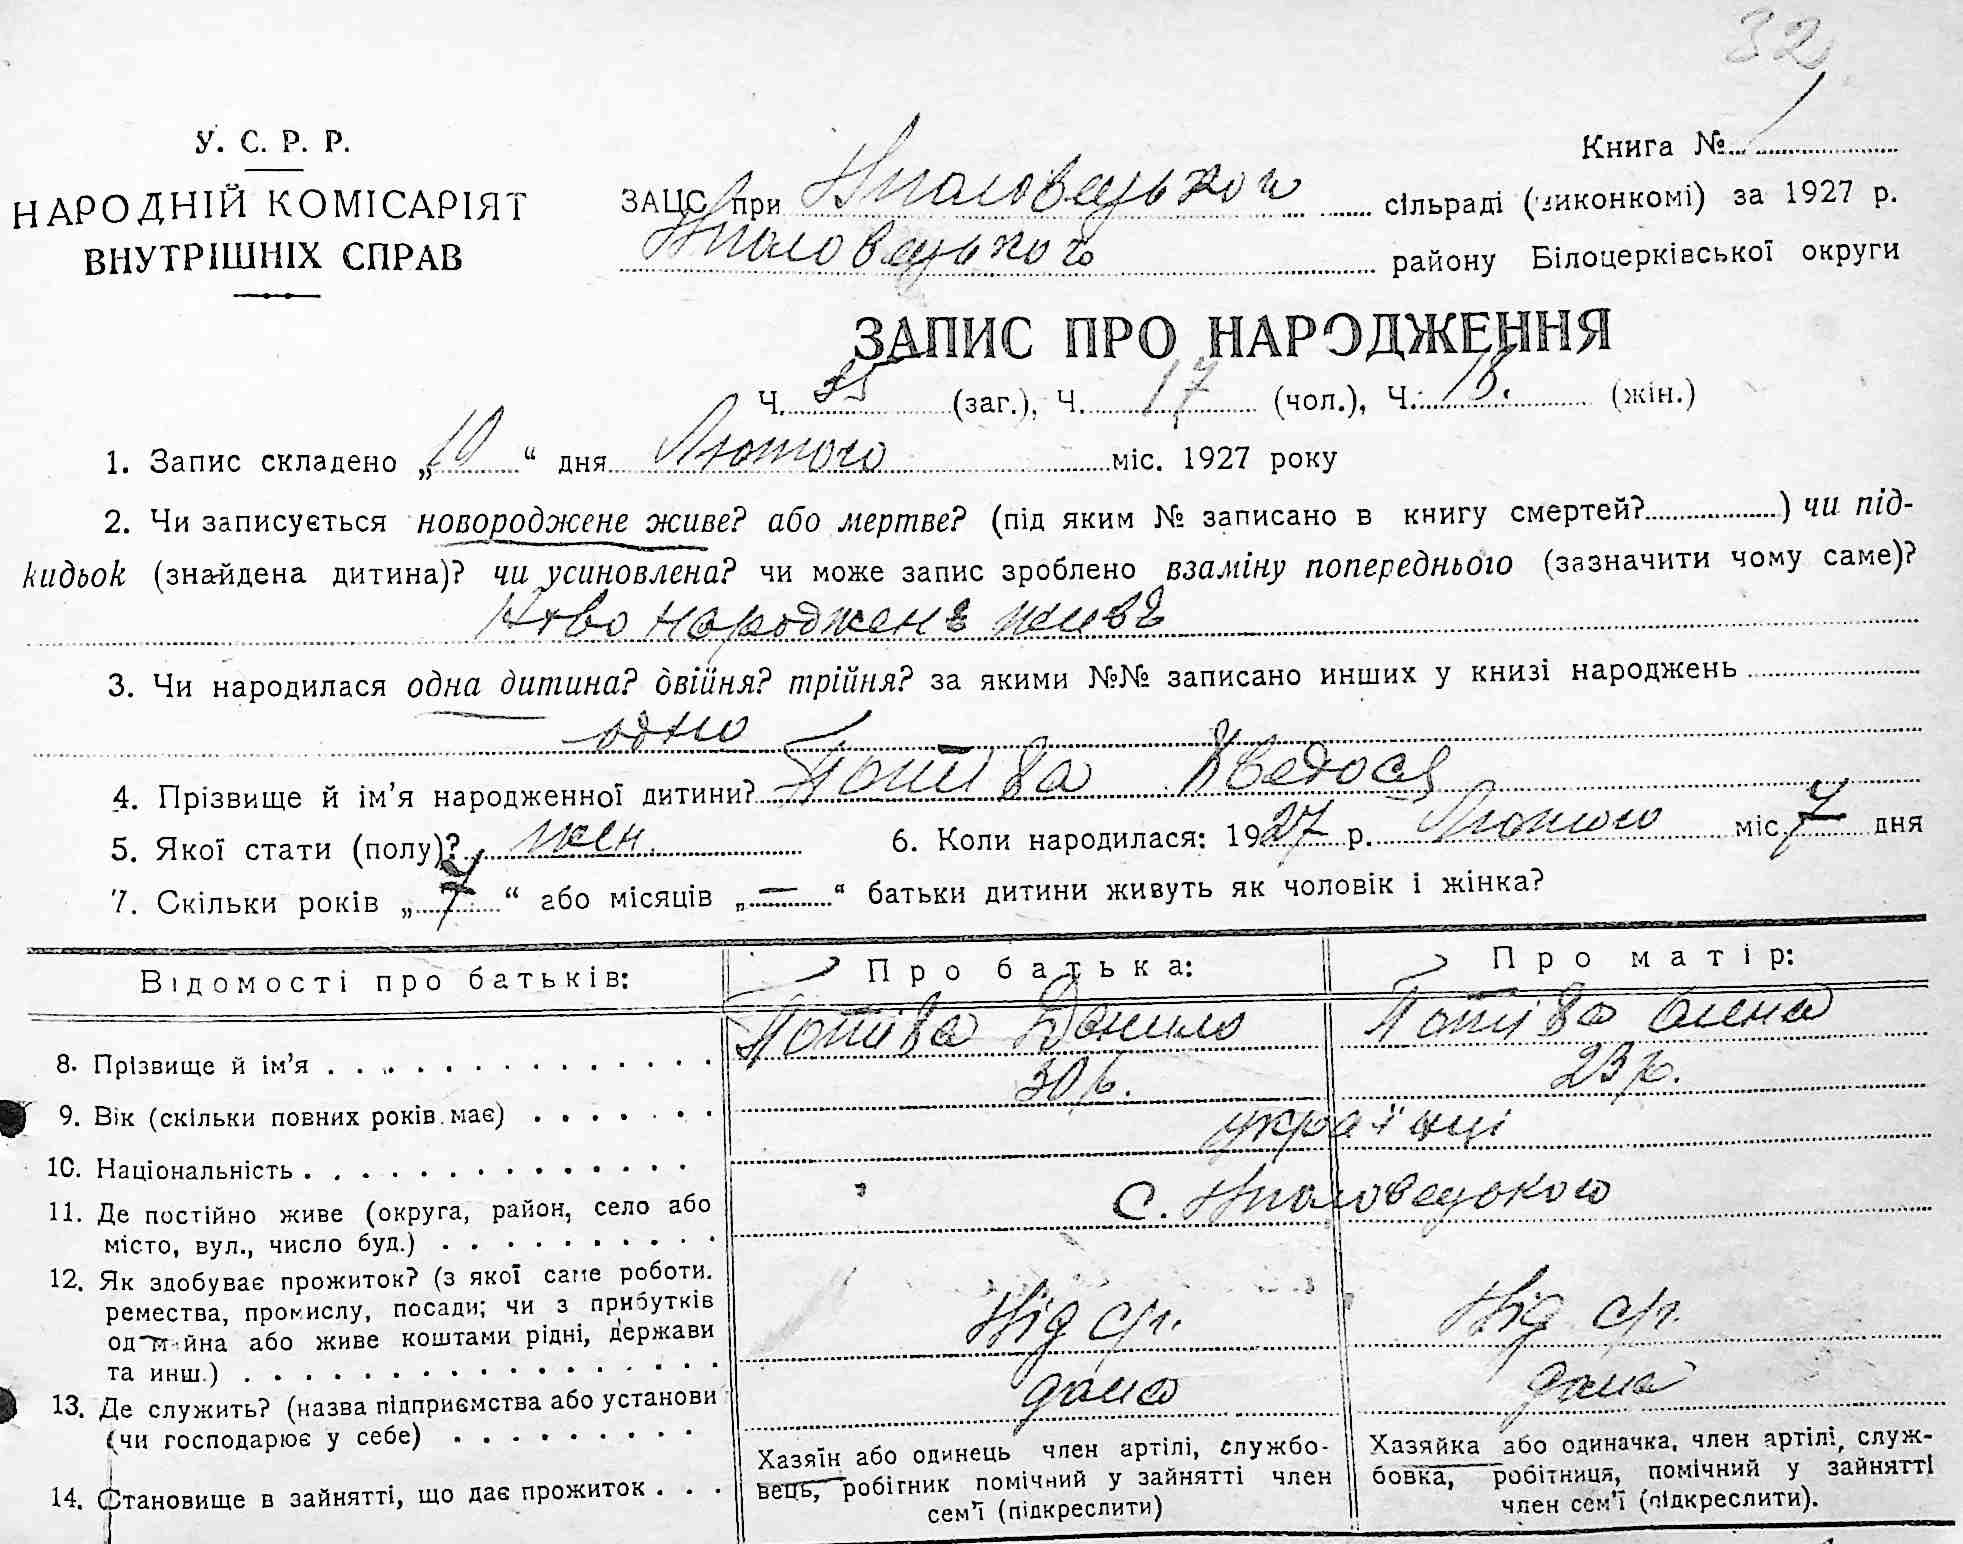 32
У. С. Р. Р.
НАРОДНІЙ КОМІСАРІЯТ
ВНУТРІШНІХ СПРАВ
Книга № 1
ЗАЦС при сільраді (виконкомі) за 1927 р.
району Білоцерківської округи
ЗАПИС ПРО НАРОДЖЕННЯ
Ч. 35 (заг.), Ч. 17 (чол.), Ч. 18. (жін.)
1. Запис складено „10“ дня Лютого міс. 1927 року
2. Чи записується новороджене живе? або мертве? (під яким № записано в книгу смертей? ) чи під-
кидьок (знайдена дитина)? чи усиновлена? чи може запис зроблено взаміну попереднього (зазначити чому саме)?
Ново народжене живе
3. Чи народилася одна дитина? двійня? трійня? за якими №№ записано инших у книзі народжень
одно
4. Прізвище й ім’я народженної дитини? Потіва Хведося
5. Якої стати (полу)? жен. 6. Коли народилася: 1927 р. Лютого міс. 7 дня
7. Скільки років „7“ або місяців „—“ батьки дитини живуть як чоловік і жінка?
Відомості про батьків: Про батька: Про матір:
8. Прізвище й ім’я Потіва Данило Потіва Олена
9. Вік (скільки повних років має) 30 р. 23 р.
10. Національність українці
11. Де постійно живе (округа, район, село або
місто, вул., число буд.) с.
12. Як здобуває прожиток? (з якої саме роботи.
ремества, промислу, посади; чи з прибутків
од майна або живе коштами рідні, держави
та инш.) Хлід ср. Хлід. ср.
13. Де служить? (назва підприємства або установи
(чи господарює у себе) дома дома
14. Становище в зайнятті, що дає прожиток
Хазяїн або одинець член артілі, службо-
вець, робітник помічний у зайнятті член
сем’ї (підкреслити)
Хазяйка або одиначка, член артілі, служ-
бовка, робітниця, помічний у зайнятті
член сем’ї (підкреслити).